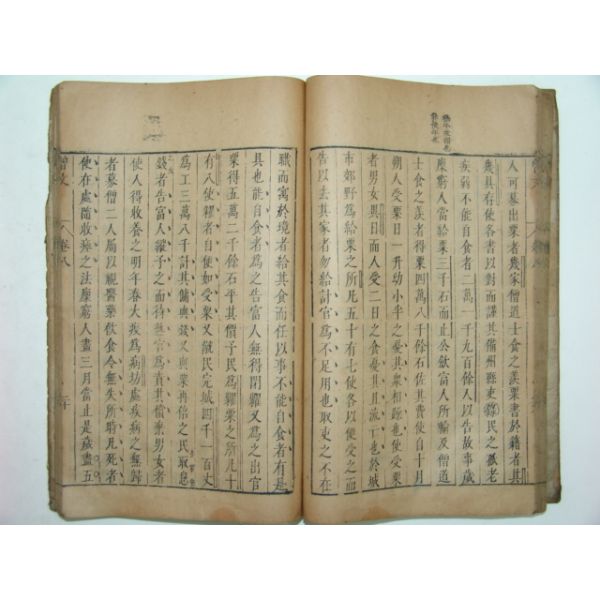 人可募出粟者幾家僧道士食之羨粟書於籍者其
幾具存使各書以對而謹其備州縣吏錄民之孤老
疾弱不能自食者二萬一千九百餘人以告故事歲
廩窮人當給粟三千石而止公斂富人所輸及僧道
士食之羨者得粟四萬八千餘石佐其費使自十月
朔人受粟日一升幼小半之憂其衆相蹂也使受粟
者男女異日而人受二日之食憂其且流亡也於城
市郊野爲給粟之所凡五十有七使各以便受之而
告以去其家者勿給計官爲不足用也取吏之不在
職而寓於境者給其食而任以事不能自食者有是
具也能自食者爲之告富人無得閉糶又爲之出官
粟得五萬二千餘石平其價予民爲糶粟之所凡十
有八使糴者自便如受粟又僦民完城四千一百丈
爲工三萬八千計其傭與錢又與粟再倍之民取息
錢者告富人縱予之而待熟官爲責其償棄男女者
使人得收養之明年春大疫爲病坊處疾病之無歸
者募僧二人屬以視醫藥飲食令無失所恃凡死者
使在處隨收瘞之法廩窮人盡三月當止是歲盡五
曾文
卷八